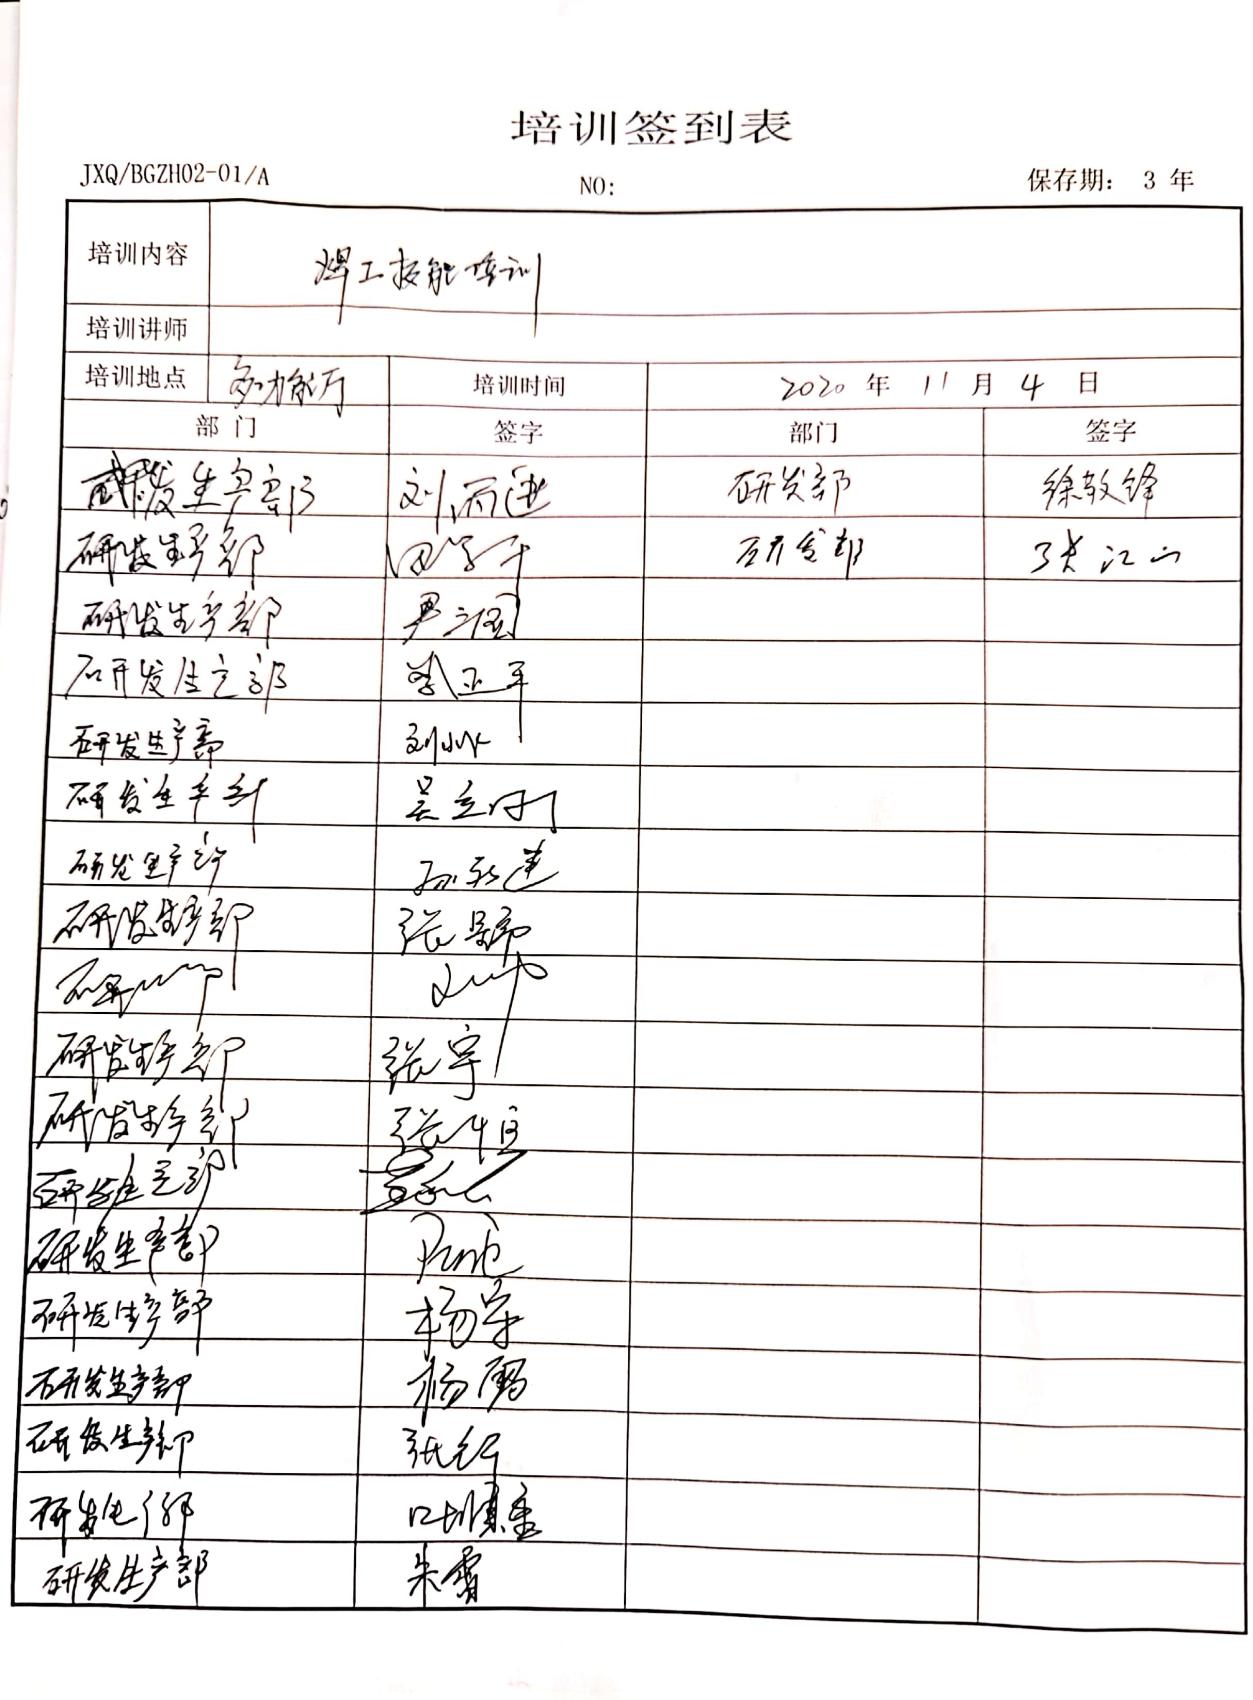 培训签到表
JXQ/BGZH02-01/A NO: 保存期: 3 年
培训内容 焊工技能培训
培训讲师
培训地点 多功能厅 培训时间 2020 年 11 月 4 日
部 门 签字 部门 签字
研发生产部 刘 研发部 徐敏锋
研发生产部 田学平 研发部 张江山
研发生产部 尹立国
研发生产部 李正平
研发生产部 刘小冰
研发生产部 吴立刚
研发生产部 孙新建
研发生产部 张
研
研发生产部 张宇
研发生产部 张恒
研发生产部
研发生产部
研发生产部 杨军
研发生产部 杨
研发生产部 张
研发生产部
研发生产部 朱霄